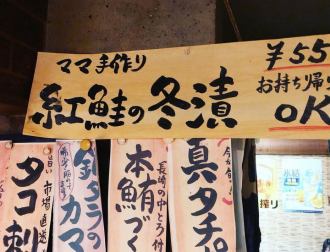 ママ手作り
紅鮭の冬漬
¥55
お持ち帰
OK
真タチ
長崎の中とろ付
本鮪づく
銀ダラの
カマ
旨い
市場直送
タコ刺
搾り